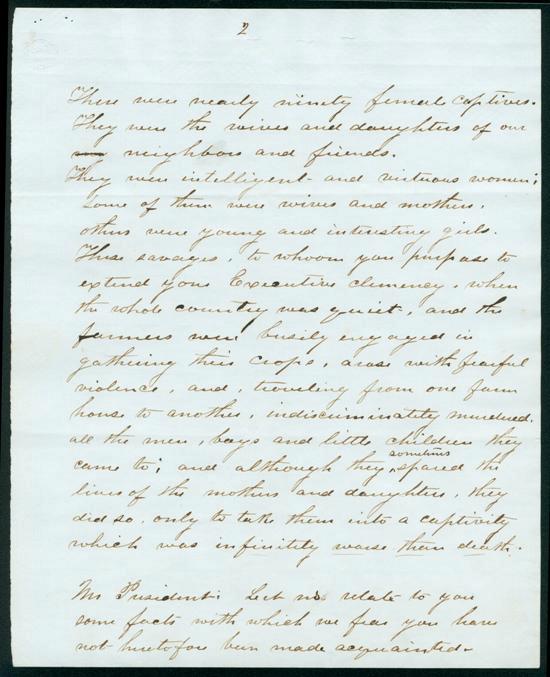 2
There were nearly ninety female captives.
They were the wives and daughters of our
neighbors and friends.
They were intelligent and virtuous women;
some of them were wives and mothers,
others were young and interesting girls.
These savages, to whom you purpose to
extend your Executive clemency, when
the whole country was quiet, and the
farmers were busily engaged in
gathering their crops, arose with fearful
violence, and, traveling from one farm
house to another, indiscriminately murdered,
all the men, boys and little children they
came to; and although they sometimes spared the
lives of the mothers and daughters, they
did so, only to take them into a captivity
which was infinitely worse than death.
Mr President: Let us relate to you
some facts with which we fear you have
not heretofore been made acquainted.